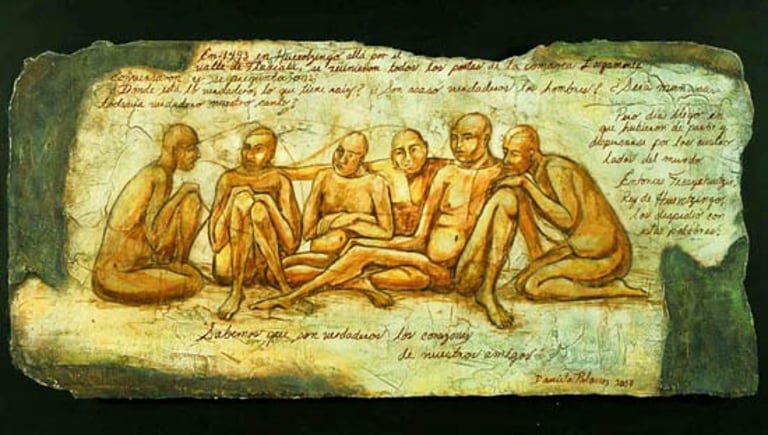 En 1493 en Huexotzingo allá por el
valle de Tlaxcala, se reunieron todos los poetas de la comarca Largamente
conversaron y se preguntaron:
¿Dónde está lo verdadero, lo que tiene raíz? ¿Son acaso verdaderos los hombres? ¿Será mañana
todavía verdadero nuestro canto?
Pero día llegó en
que hubieron de partir y
dispersarse por los cuatro
lados del mundo
Entonces Tecayehuatzin,
Rey de Huexotzingo,
los despidió con
estas palabras:
Sabemos que son verdaderos los corazones
de nuestros amigos
Daniela 2007